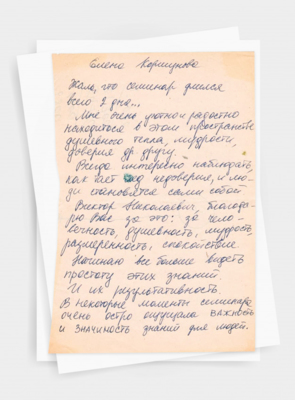 Елена Коршунова
Жаль, что семинар длился
всего 2 дня...
Мне очень уютно и радостно
находиться в этом пространстве
душевного тепла, мудрости,
доверия др другу.
Всегда интересно наблюдать
как тает лед недоверия, и лю-
ди становятся сами собой
Виктор Николаевич, благода-
рю Вас за это: за чело-
вечность, душевность, мудрость
размеренность, спокойствие.
Начинаю все больше видеть
простоту этих знаний
И их результативность.
В некоторые моменты семинара
очень остро ощущала важность
и значимость знаний для людей.